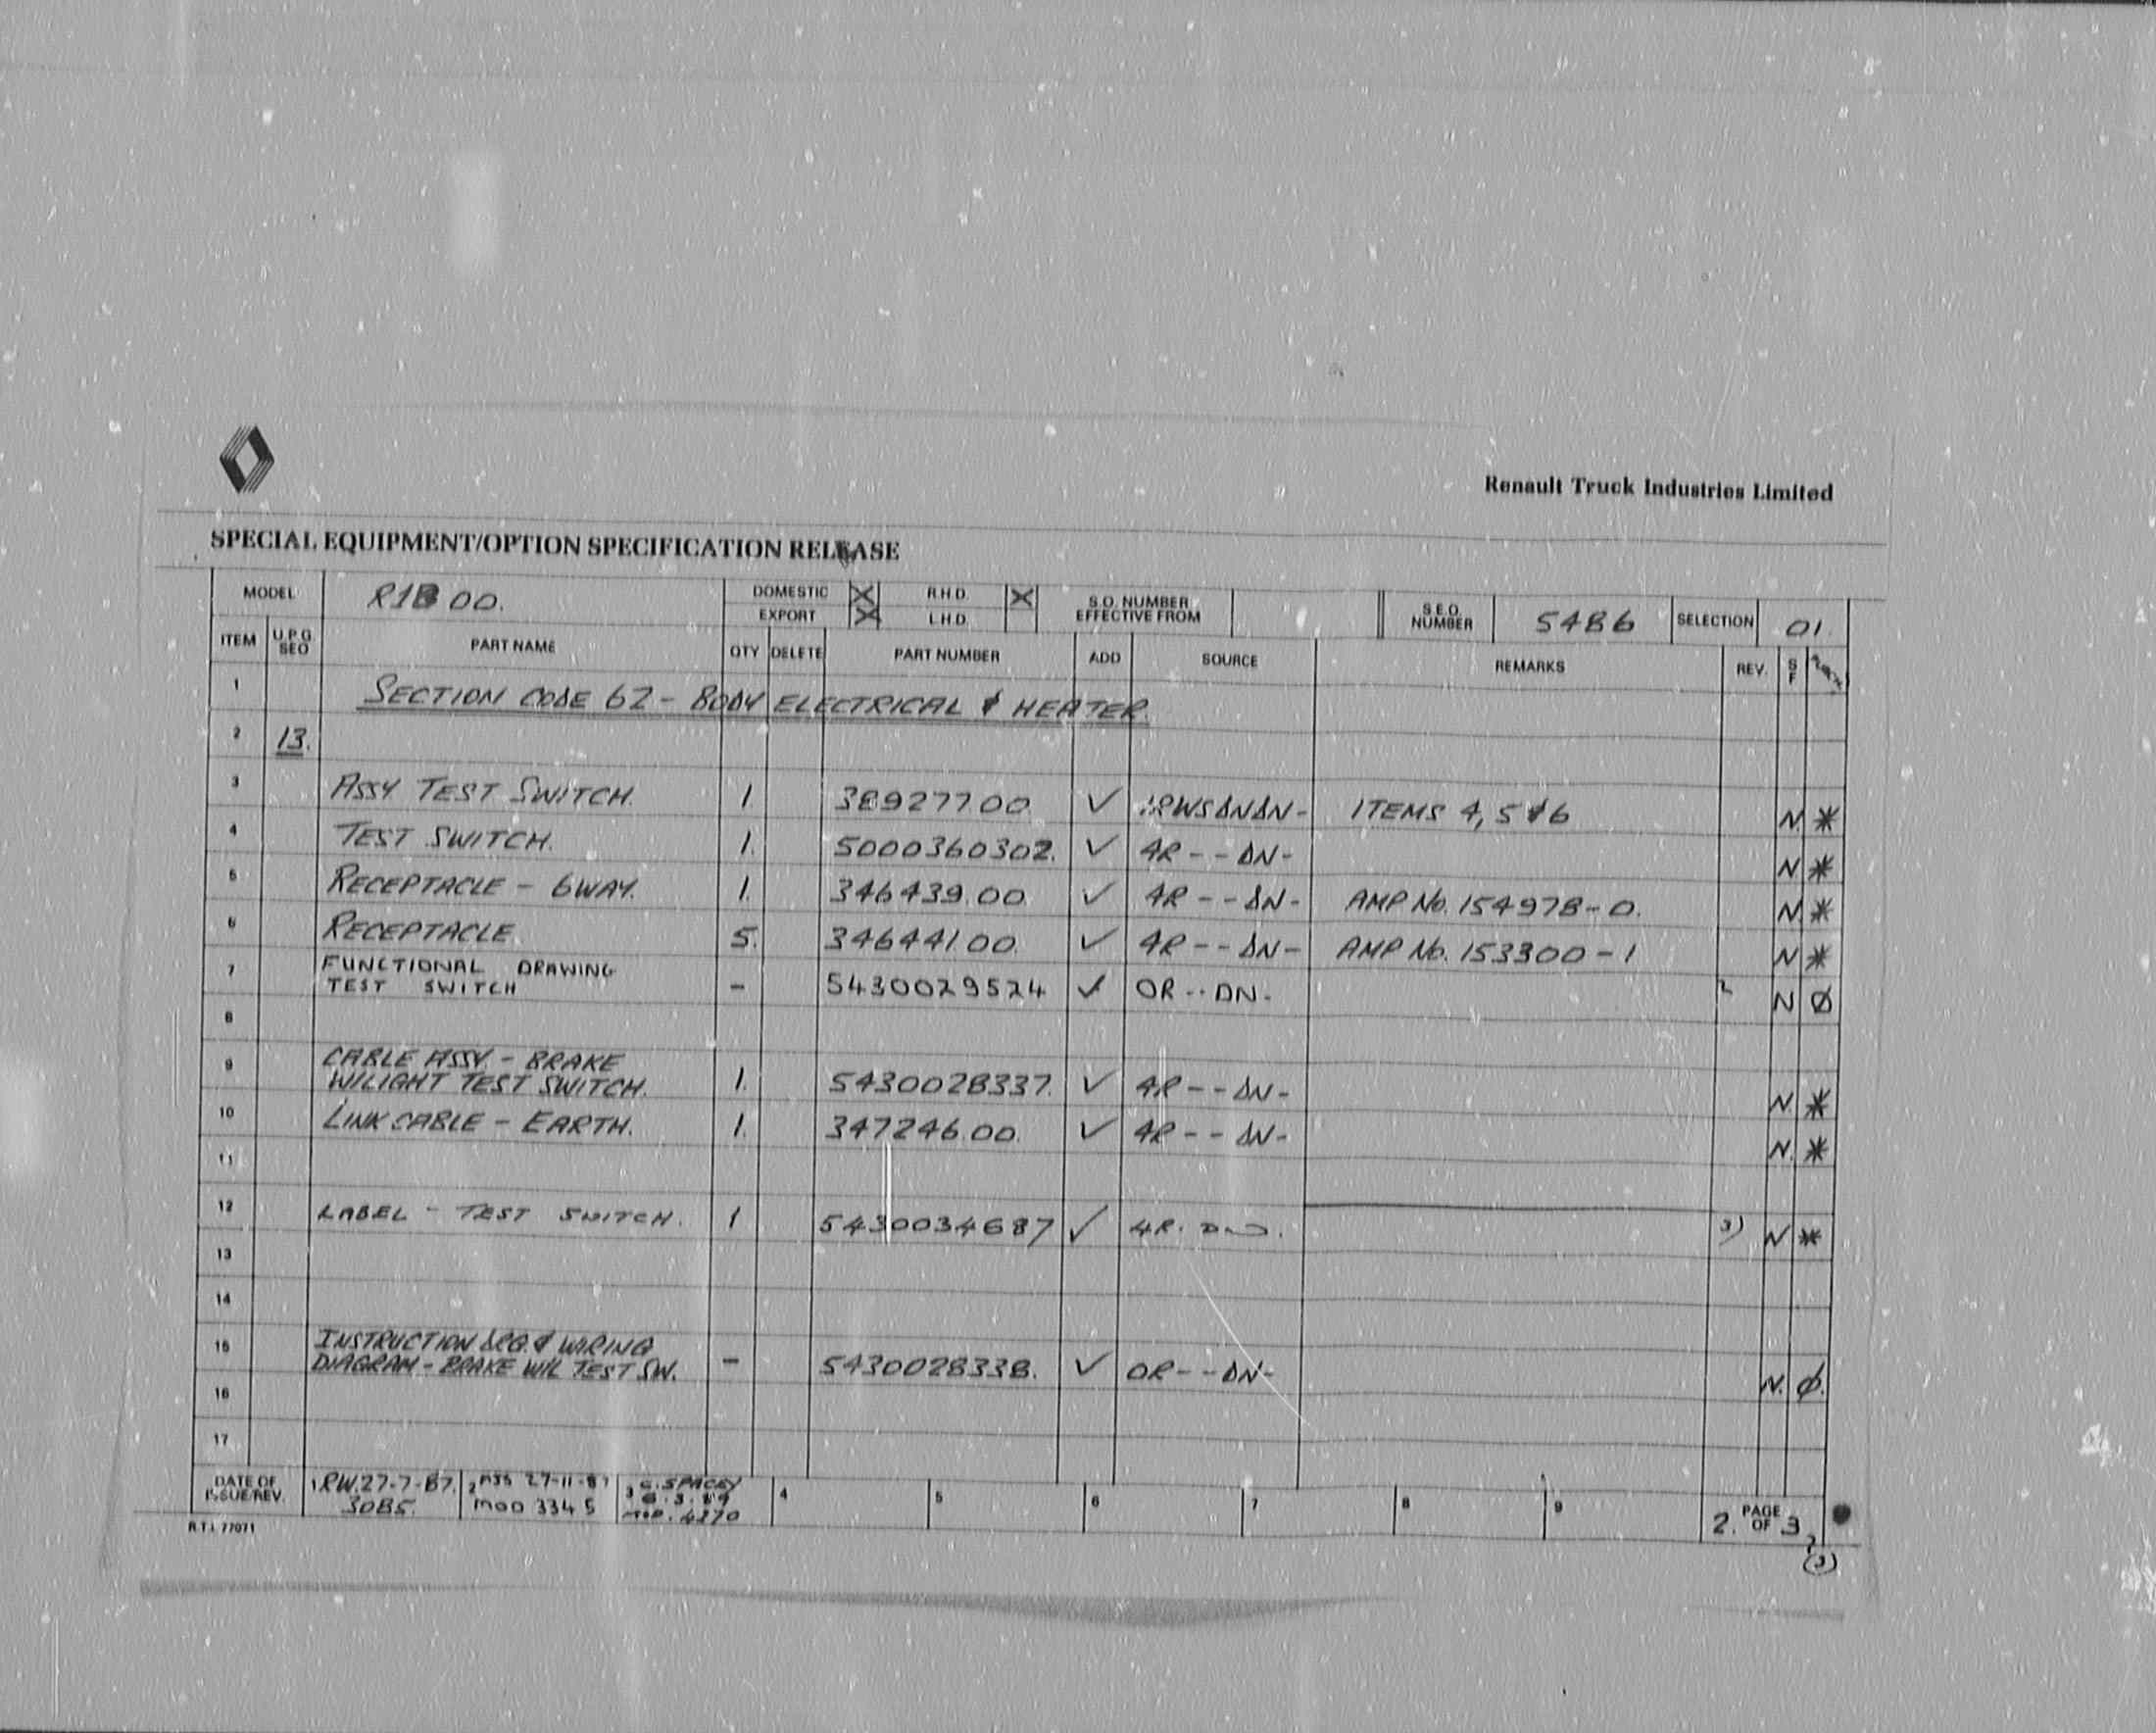 Renault Truck Industries Limited
SPECIAL EQUIPMENT/OPTION SPECIFICATION RELEASE
MODEL R1B 00. DOMESTIC X R.H.D. X S.O. NUMBER EFFECTIVE FROM S.E.O. NUMBER 5486 SELECTION 01.
EXPORT X L.H.D.
ITEM U.P.G. SEO PART NAME QTY DELETE PART NUMBER ADD SOURCE REMARKS REV. S F
1 SECTION CODE 62 - BODY ELECTRICAL & HEATER.
2 13.
3 ASSY TEST SWITCH. 1 389277.00. ✓ ITEMS 4, 5 & 6 N *
4 TEST SWITCH. 1. 5000360302. ✓ 4R - - DN - N *
5 RECEPTACLE - 6WAY. 1. 346439.00. ✓ 4R - - DN - AMP No. 154978-0. N. *
6 RECEPTACLE. 5. 346441.00. ✓ 4R - - DN - AMP No. 153300-1 N *
7 FUNCTIONAL DRAWING
TEST SWITCH - 5430029524 ✓ OR - - DN - 2 N Ø
8
9 CABLE ASSY. - BRAKE
W/LIGHT TEST SWITCH. 1. 5430028337. ✓ 4R - - DN - N. *
10 LINK CABLE - EARTH. 1. 347246.00. ✓ 4R - - DN - N. *
11
12 LABEL - TEST SWITCH. 1 5430034687 ✓ 4R. DN. 3) N *
13
14
15 INSTRUCTION DRG. & WIRING
DIAGRAM - BRAKE W/L TEST SW. - 5430028338. ✓ OR - - DN - N. Ø.
16
17
DATE OF ISSUE/REV. 1 RW. 27-7-87. 2 27-11-87 3 G. SPACEY 4 5 6 7 8 9 2. PAGE OF 3
3085. MOD 3345 6.3.89
4270
R.T.I. 77071
(3)